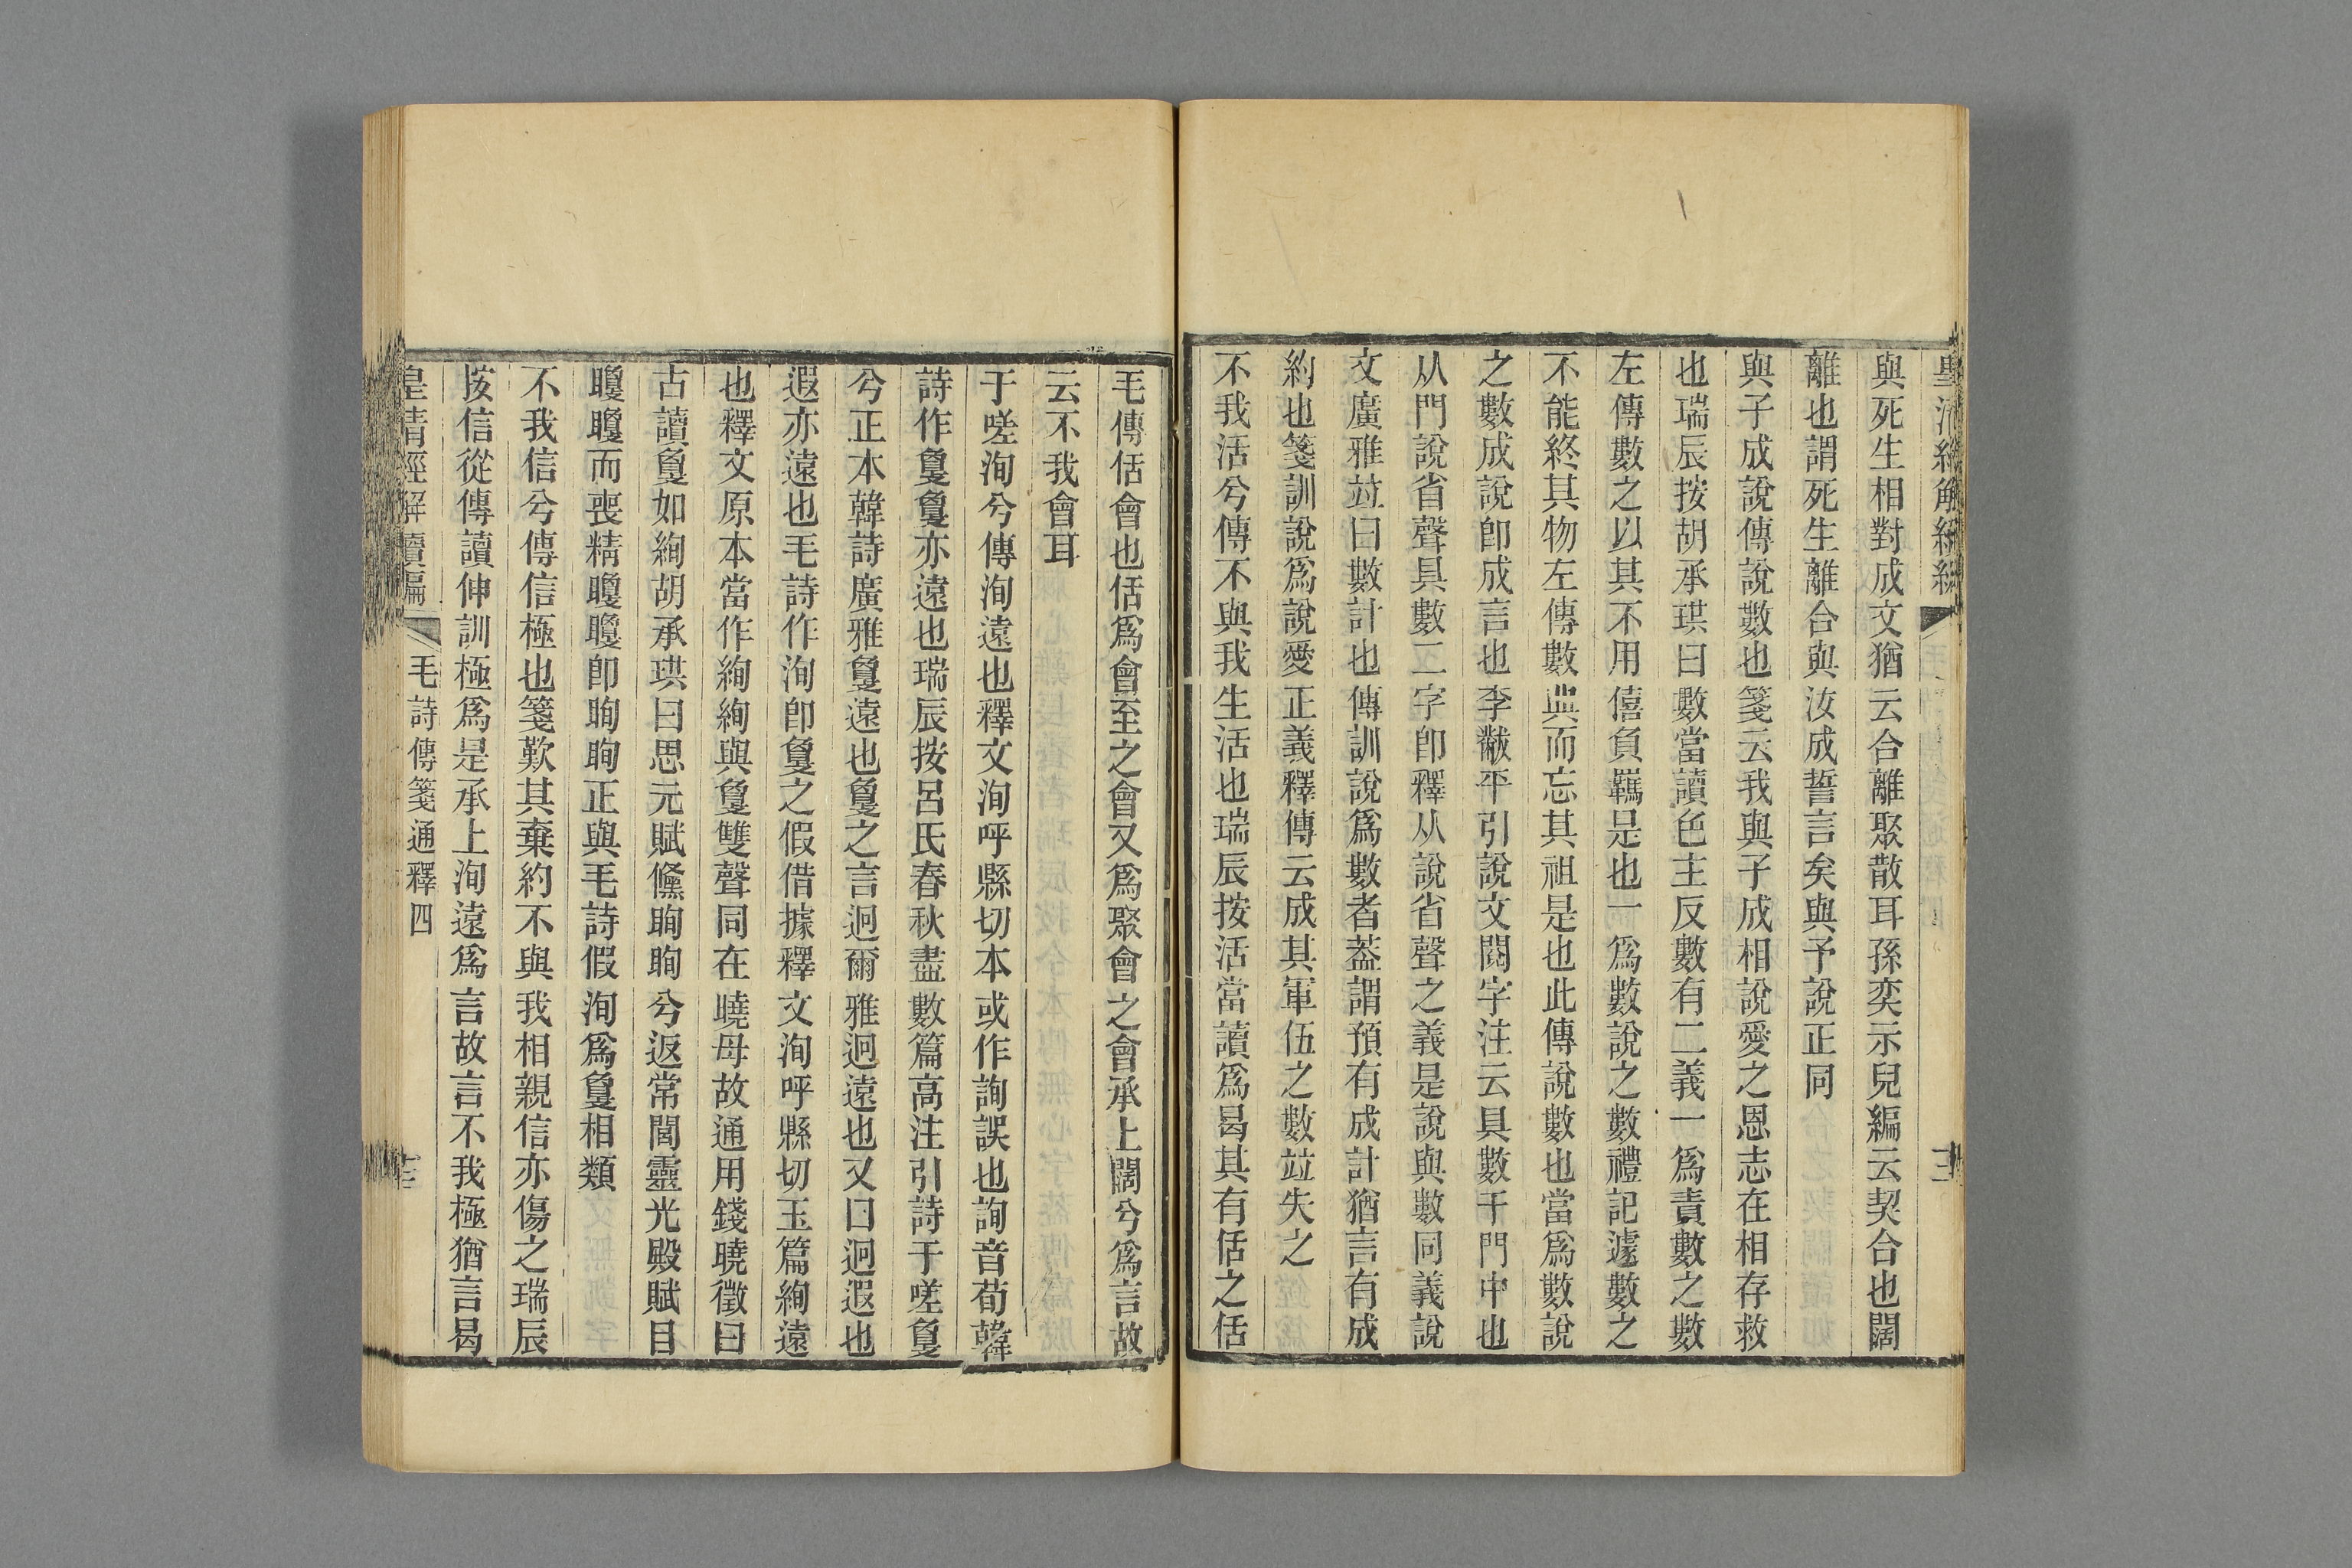 與死生相對成文猶云合離聚散耳孫奕示兒編云契合也闊
離也謂死生離合與汝成誓言矣與予說正同
與子成說傳說數也箋云我與子成相說愛之恩志在相存救
也瑞辰按胡承珙曰數當讀色主反數有二義一爲責數之數
左傳數之以其不用僖負羈是也一爲數說之數禮記遽數之
不能終其物左傳數典而忘其祖是也此傳說數也當爲數說
之數成說卽成言也李黻平引說文閱字注云具數于門中也
从門說省聲具數二字卽釋从說省聲之義是說與數同義說
文廣雅竝曰數計也傳訓說爲數者葢謂預有成計猶言有成
約也箋訓說爲說愛正義釋傳云成其軍伍之數竝失之
不我活兮傳不與我生活也瑞辰按活當讀爲曷其有佸之佸
毛傳佸會也佸爲會至之會又爲聚會之會承上闊兮爲言故
云不我會耳
于嗟洵兮傳洵遠也釋文洵呼縣切本或作詢誤也詢音荀韓
詩作敻敻亦遠也瑞辰按呂氏春秋盡數篇高注引詩于嗟敻
兮正本韓詩廣雅敻遠也敻之言迥爾雅迥遠也又曰迥遐也
遐亦遠也毛詩作洵卽敻之假借據釋文洵呼縣切玉篇絢遠
也釋文原本當作絢絢與敻雙聲同在曉母故通用錢曉徵曰
古讀敻如絢胡承珙曰思元賦儵眴眴兮返常閭靈光殿賦目
矎矎而喪精矎矎卽眴眴正與毛詩假洵爲敻相類
不我信兮傳信極也箋歎其棄約不與我相親信亦傷之瑞辰
按信從傳讀伸訓極爲是承上洵遠爲言故言不我極猶言曷
皇清經解續編
毛詩傳箋通釋四